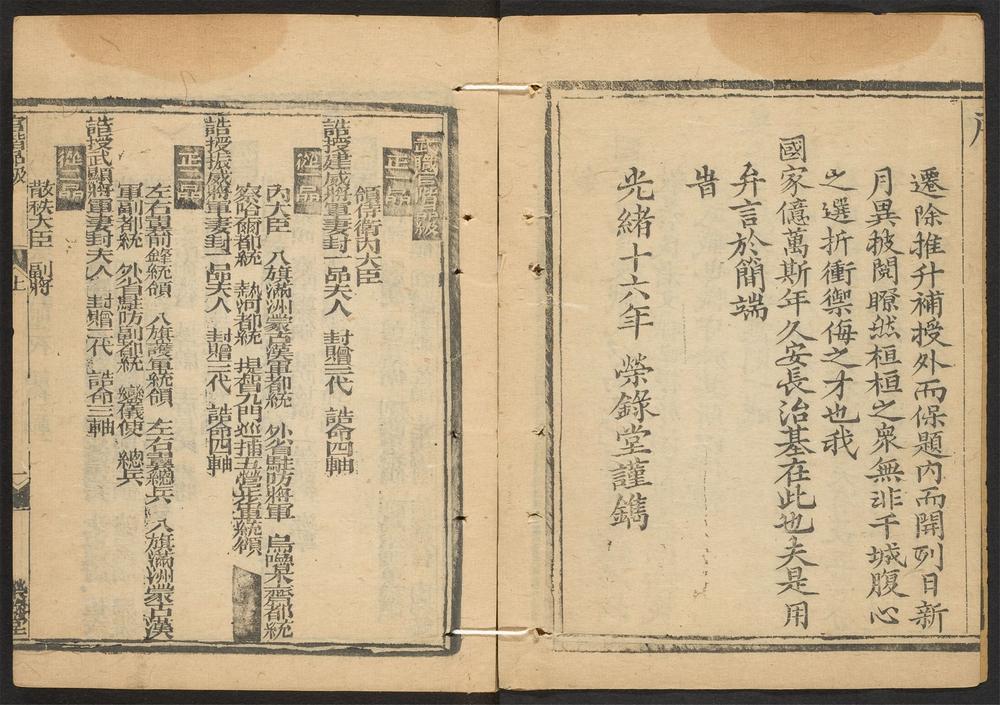 遷除推升補授外而保題內而開列日新
月異披閱瞭然桓桓之衆無非干城腹心
之選折衝禦侮之才也我
國家億萬斯年久安長治基在此也夫是用
弁言於簡端
旹
光緒十六年 榮錄堂謹鐫
武職官階品級
正一品
領侍衛內大臣
誥授建威將軍妻封一品夫人 封贈三代 誥命四軸
從一品
內大臣 八旗滿洲蒙古漢軍都統 外省駐防將軍 烏魯木齊都統
察哈爾都統 熱河都統 提督九門巡捕五營步軍統領
誥授振威將軍妻封一品夫人 封贈三代 誥命四軸
正二品
左右翼前鋒統領 八旗護軍統領 左右翼總兵 八旗滿洲蒙古漢
軍副都統 外省駐防副都統 鑾儀使 總兵
誥授武顯將軍妻封夫人 封贈二代 誥命三軸
從二品
散秩大臣 副將
官階品級 上 一 榮錄堂